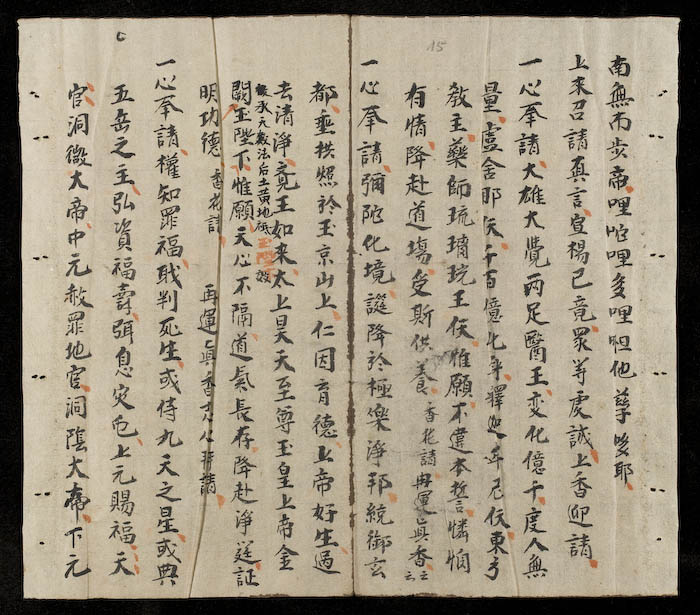 南無布步帝哩哋哩多哩怛他孽哆耶
上来召請真言宣楊已竟眾等虔誠上香迎請
一心奉請大雄大覺两足醫王变化億千度人無
量盧舍那仸千百億化身釋迦牟尼仸東方
教主藥師琉璃琓王仸惟願不違本誓憐憫
有情降赴道塲受斯供養香花請 再運真香云云
一心奉請彌陁化境誕降於極樂淨邦統御玄
都垂拱照於玉京山上仁因育德上帝好生過
去清淨竟王如来太上昊天至尊玉皇上帝金
後承天效法后土黄地祇玉陛下 殿
闕玉陛下惟願天心不隔道氣長存降赴淨筵証
明功德 香花請 再運真香志心拜請
一心奉請權知罪福職判死生或侍九天之星或典
五岳之主弘資福壽弭息灾危上元賜福天
官洞微大帝中元赦罪地官洞陰大帝下元
15